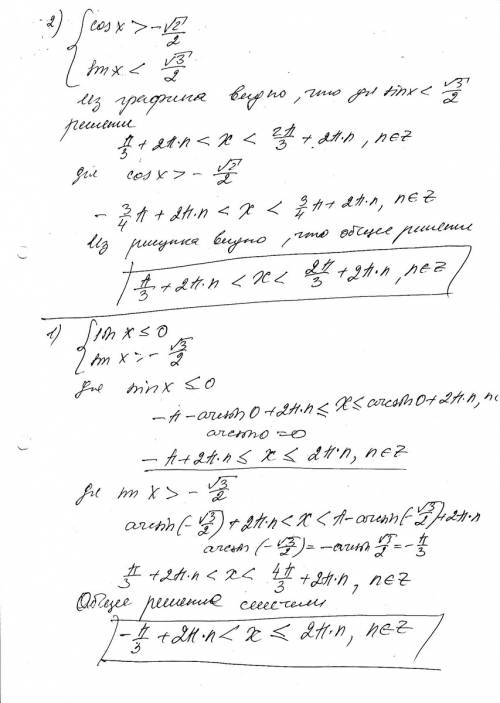 2) { cos x > -√2/2
{ sin x < √3/2
Из графика видно, что для sin x < √3/2
решения
π/3 + 2π·n < x < 2π/3 + 2π·n, n∈Z
для cos x > -√2/2
-3/4 π + 2π·n < x < 3/4 π + 2π·n, n∈Z
Из рисунка видно, что общее решение
π/3 + 2π·n < x < 2π/3 + 2π·n, n∈Z
1) { sin x ≤ 0
{ sin x > -√3/2
для sin x ≤ 0
-π - arcsin 0 + 2π·n ≤ x ≤ arcsin 0 + 2π·n, n∈
arcsin 0 = 0
-π + 2π·n ≤ x ≤ 2π·n, n∈Z
для sin x > -√3/2
arcsin(-√3/2) + 2π·n < x < π - arcsin(-√3/2) + 2π·n
arcsin(-√3/2) = -arcsin √3/2 = -π/3
π/3 + 2π·n < x < 4π/3 + 2π·n, n∈Z
Общее решение системы
-π/3 + 2π·n < x ≤ 2π·n, n∈Z